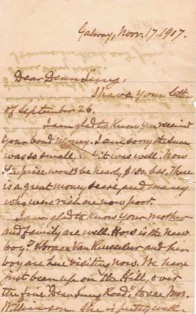 Galway, Nov. 17, 1917.
Dear Dean Sieg,
I have your letter
of September 26.
I am glad to know you received
your bond money. I am sorry the sum
was so small, it was well. Now
the price wont be nearly, $ or less. There
is a great money scare, and many
who were rich are now poor.
I am glad to know your mother
and family are well. How is the new
boy? Horace Van and her
boy are here visiting now. We have
just been up on the Hill, over
the fine Road, to see Mrs.
She is pretty well